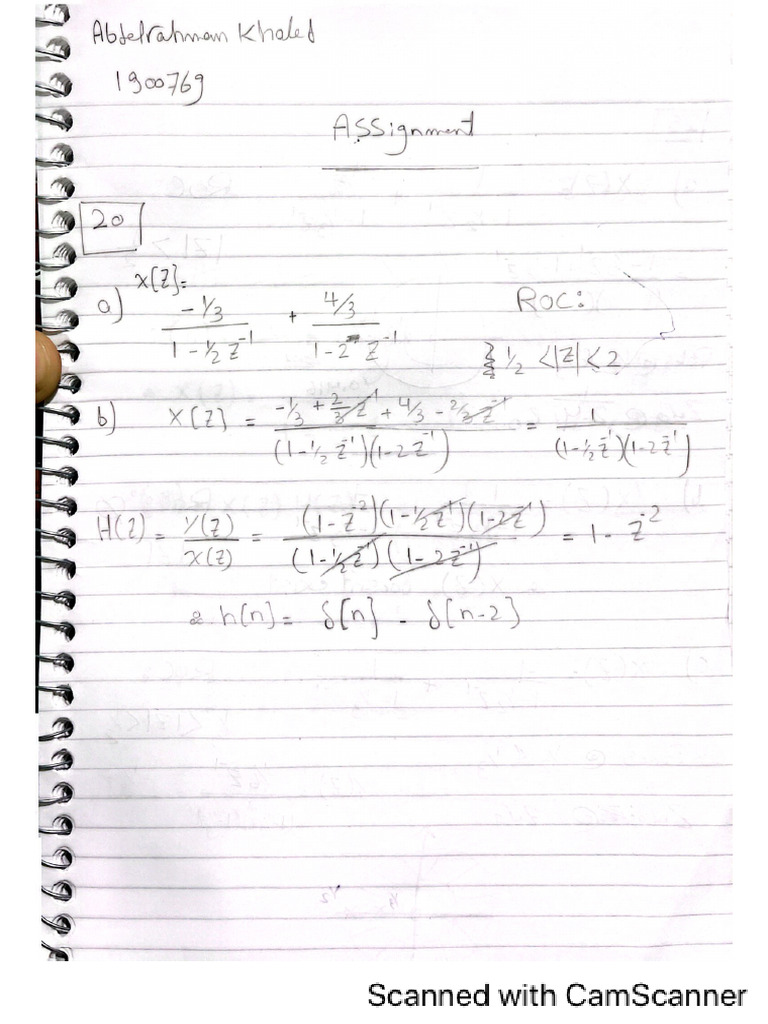 Abdelrahman Khaled
1900769
Assignment
20
a) X[Z]= (-1/3)/(1-1/2 Z^-1) + (4/3)/(1-2 Z^-1) ROC:
1/2 <|Z|< 2
b) X[Z] = (-1/3 + 2/3 Z^-1 + 4/3 - 2/3 Z^-1)/((1-1/2 Z^-1)(1-2Z^-1)) = 1/((1-1/2 Z^-1)(1-2Z^-1))
H(Z) = Y(Z)/X(Z) = ((1-Z^-2)(1-1/2 Z^-1)(1-2Z^-1))/((1-1/2 Z^-1)(1-2Z^-1)) = 1 - Z^-2
h[n] = δ[n] - δ[n-2]
Scanned with CamScanner